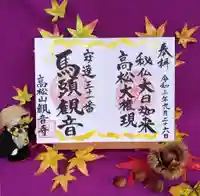 奉拝
令和三年九月二十六日
秘仏大日如来
高松大権現
安達三十一番
馬頭観音
高松山観音寺